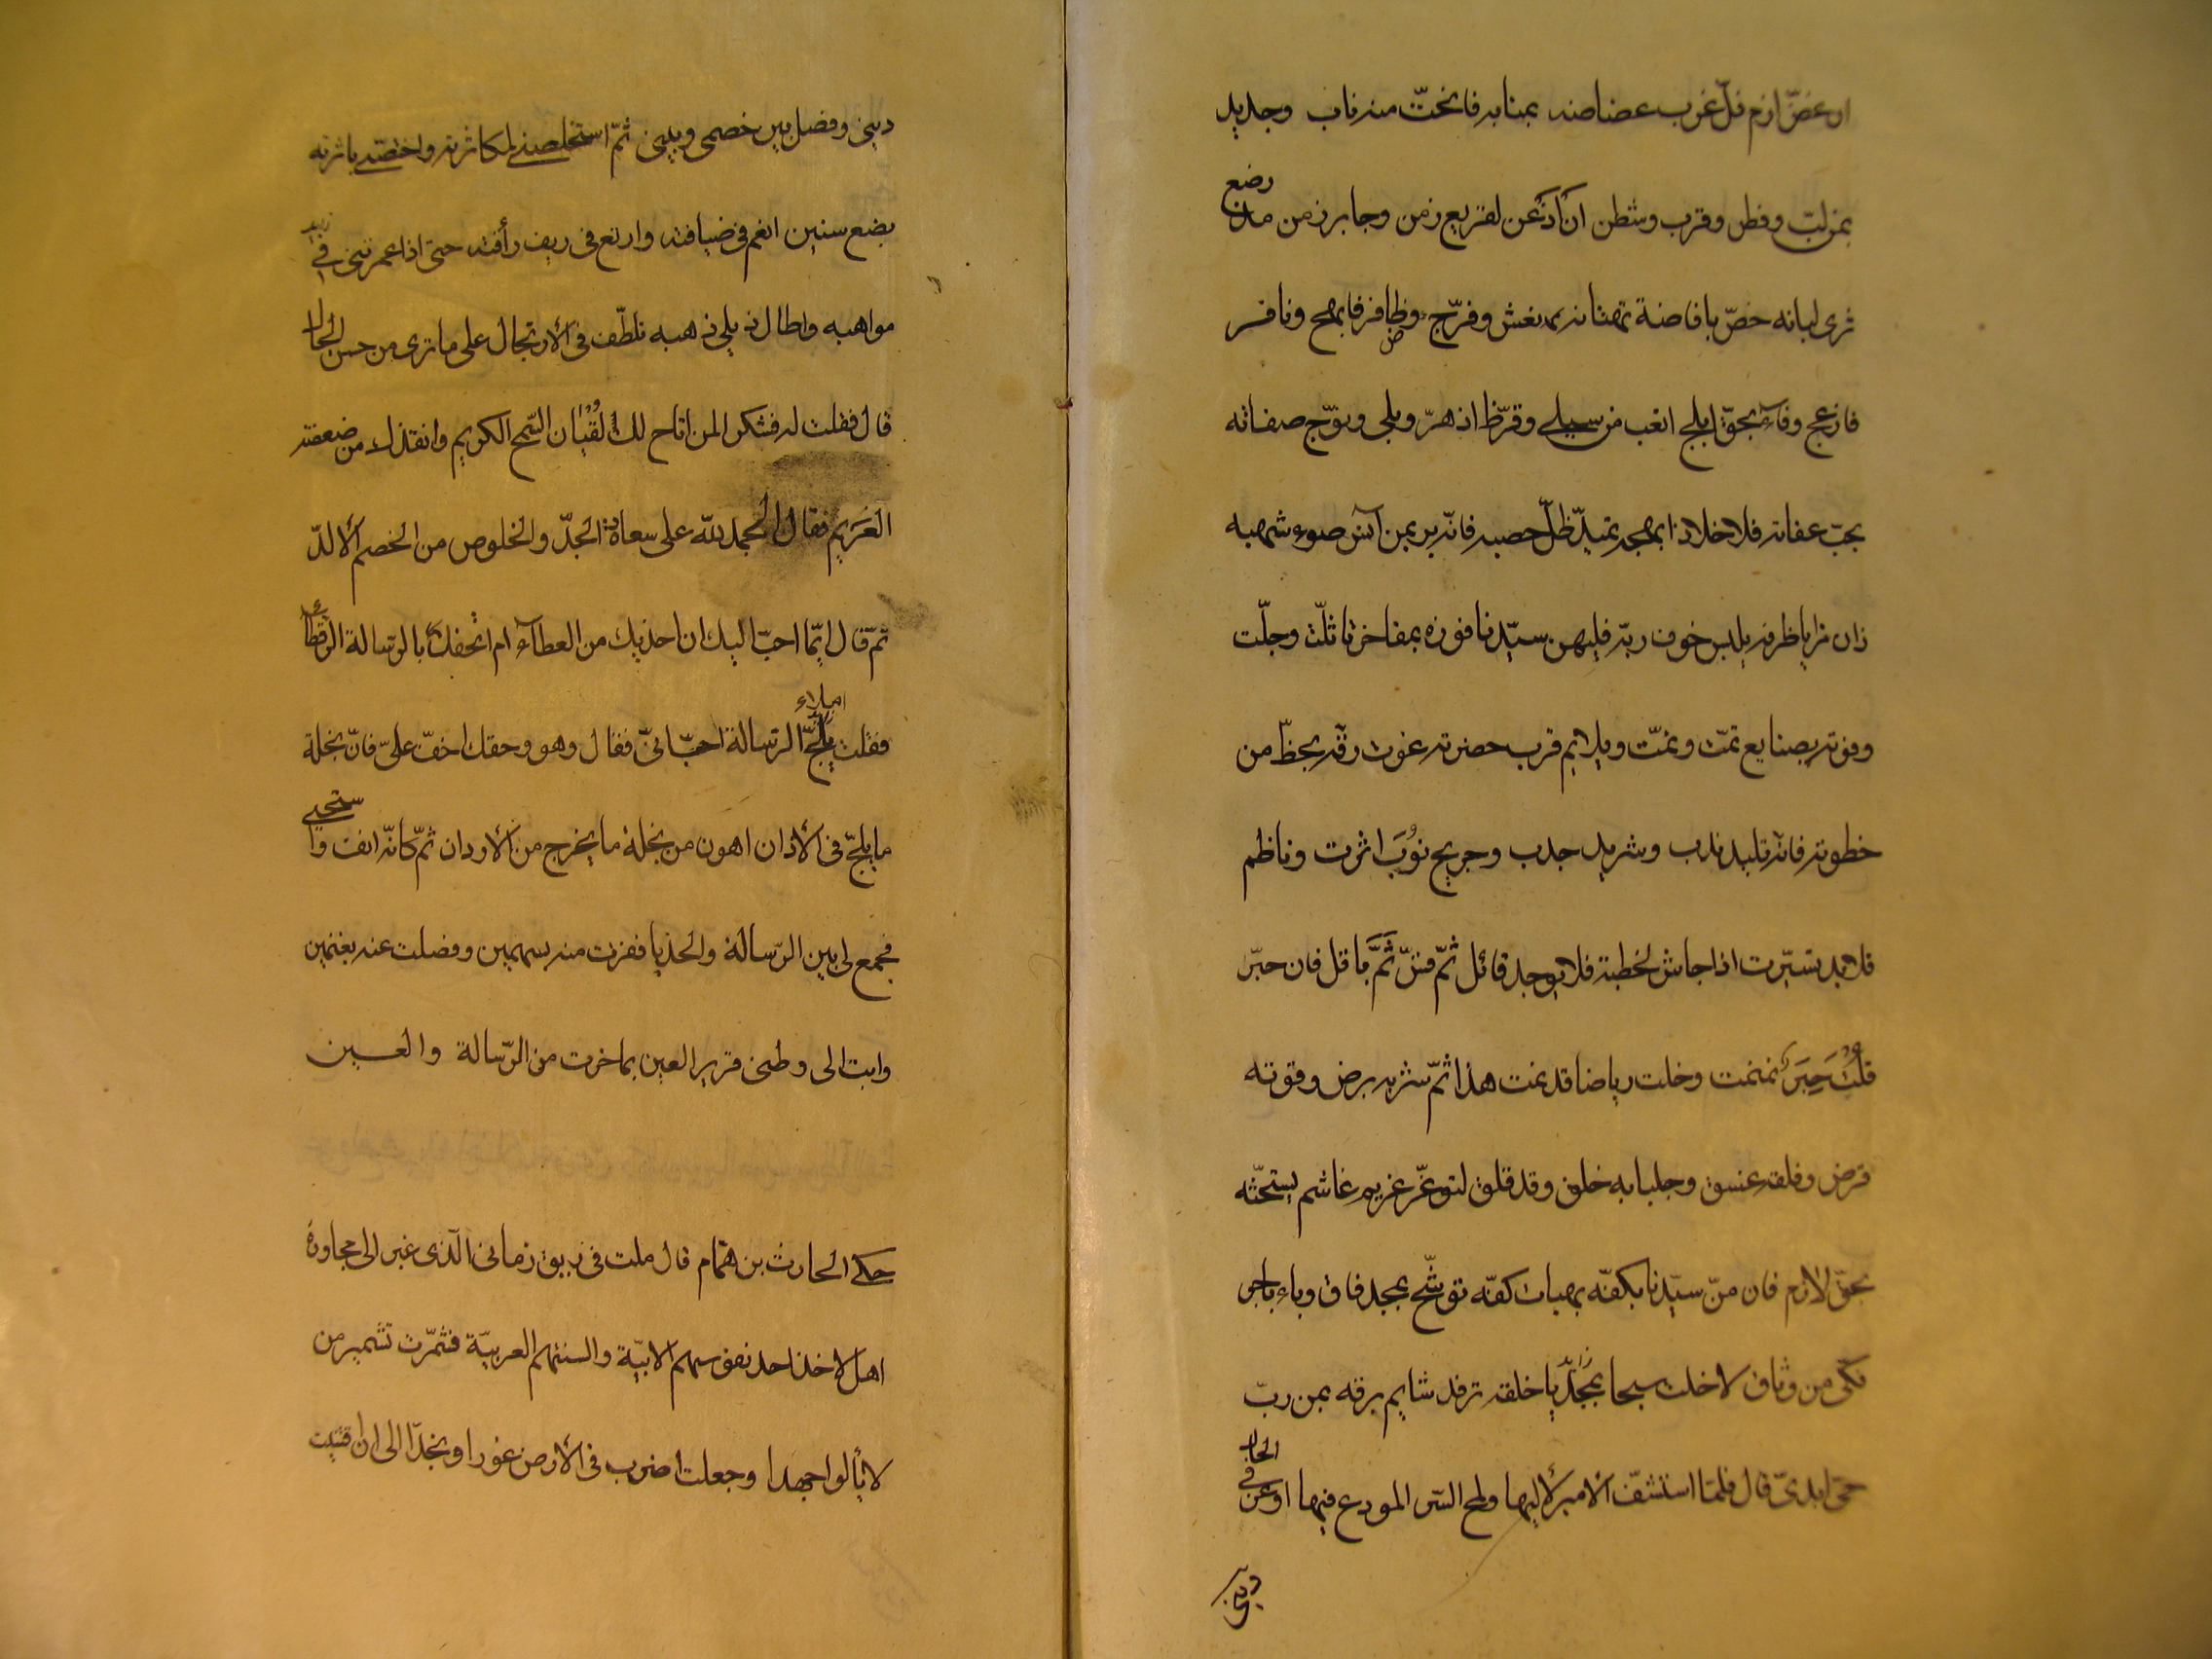 ان عضّ ازم فلّ غرب عضاضه بمنابه فانحتّ منه ناب وجليد
بمن لبّ وفطن وقرب وشطن ان اذعن لقريع زمن وجابر زمن مذ رضع
ثرى لبانه خصّ بافاضة تهتانه نعش وفرّج وظافر فابهج ونافر
فازعج وفاء بحقّ ابلج اتعب من سيلى وقرّظ اذ هزّ وبلى وتوّج صفاته
بحبّ عفاته فلا خلا ذا بهجة يمتدّ ظلّ خصبه فانّه برّ بمن آنس ضوء شهبه
زان مزايا ظرفه بلبس خوف ربّه فليهن سيّدنا فوزه بمفاخر تاثلّت وجلّت
وفوته بصنايع تمّت ونمّت ويلايم قرب حضرته غوث رقّه بحظّ من
خطوته فانه تليد ندب وشريد جدب وجريح نوب اثرت وناظم
قلايد تسيّرت اذا جاش لخطبة فلا يوجد قائل ثمّ قسّ ثَمّ باقل فان حبّر
قلت حبر نمنمت وخلت رياضا قد نمت هذا ثمّ شربه برض وقوته
قرض وفلقه غسق وجلبابه خلق وقد قلق لتوغّر غريم غاشم يستحثّه
بحقّ لازم فان منّ سيّدنا بكفّه بهبات كفّه توشّح بمجد فاق وباء باجر
فكّى من وثاق لا خلت سجايا خلقه ترفد شايم برقه بمن ربّ
حىّ ابدىّ قال فلمّا استشفّ الامير لاليها ولمح السّر المودع فيها اوعز فى الحال
دينى
دينى وفصل بين خصمى وبينى ثمّ استخلصنى لمكاثرته واختصّنى باثرته
بضع سنين انعم فى ضيافته وارتع فى ريف رأفته حتى اذا غمرتنى
مواهبه واطال ذيلى ذهبه تلطّفت فى الارتحال على ما ترى من حسن الحال
قال فقلت له فشكرا لمن اتاح لك لقيان السّمح الكريم وانقذك من ضغطة
الغريم فقال الحمد للّه على سعادة الجدّ والخلوص من الخصم الالدّ
ثمّ قال ايّما احبّ اليك ان احذيك من العطاء ام اتحفك بالرسالة الرّقطاء
فقلت املاء الرسالة احبّ الىّ فقال وهو وحقك اخفّ علىّ فانّ نحلة
ما يلج فى الاذان اهون من نحلة ما يخرج من الاردان ثمّ كانّه انف واستحيى
فجمع لى بين الرّسالة والحذيا ففزت منه بسهمين وفصلت عنه بغنمين
وابت الى وطنى قرير العين بما حزت من الرّسالة والعين
حكى الحارث بن همّام قال ملت فى ريق زمانى الّذى غبر الى مجاورة
اهل لاخذ اخذ نفوسهم الابيّة والسنتهم العربيّة فشمّرت تشمير من
لا يألوا جهدا وجعلت اضرب فى الارض غورا ونجدا الى ان اقتنيت